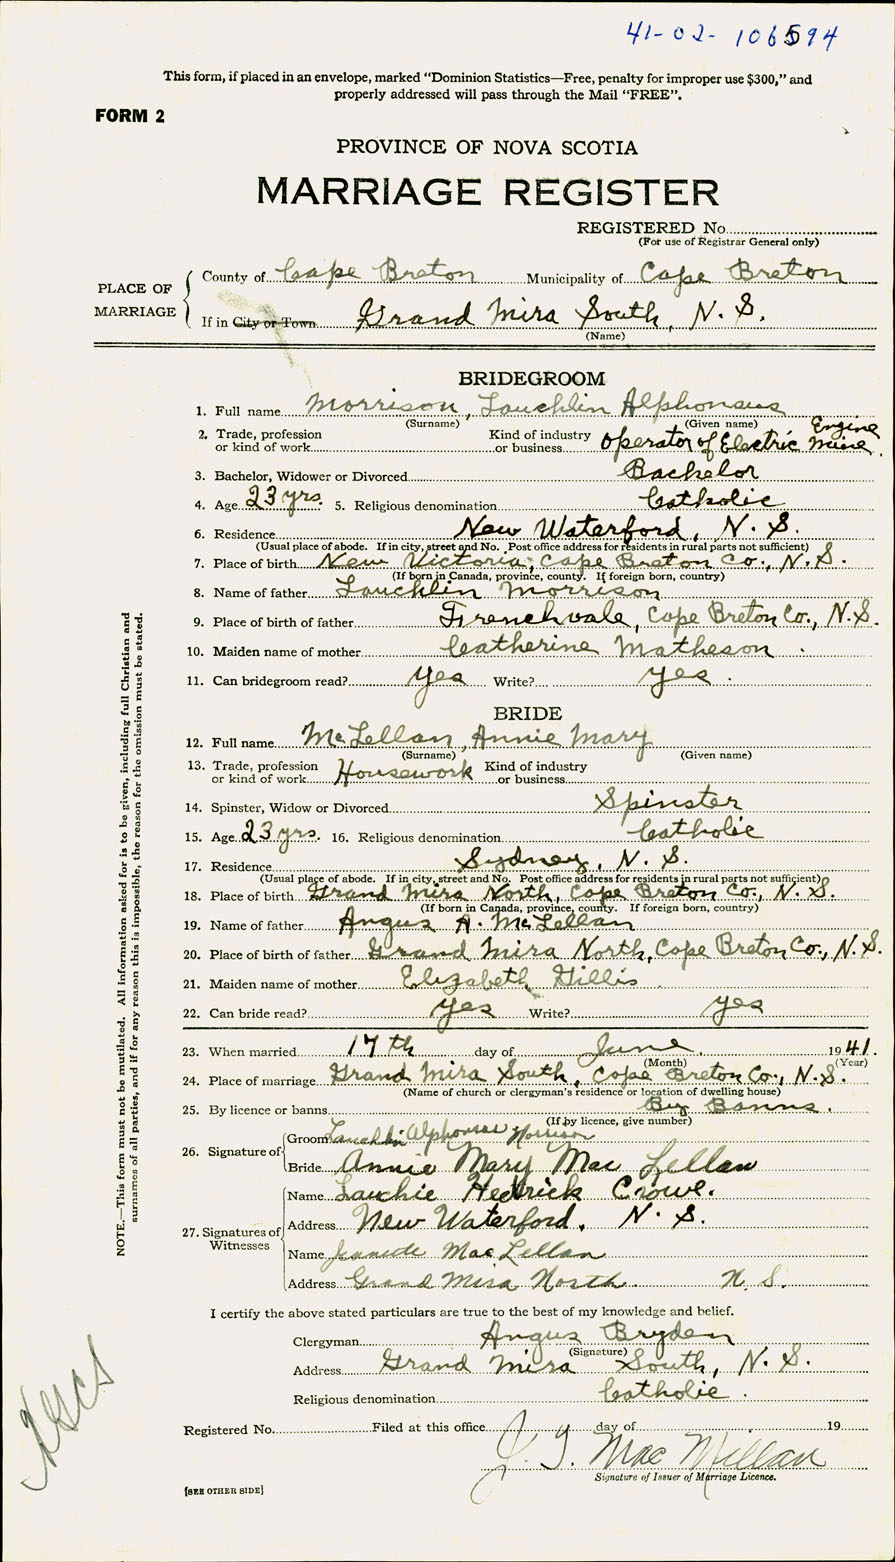 41-02-106594
This form, if placed in an envelope, marked "Dominion Statistics—Free, penalty for improper use $300," and
properly addressed will pass through the Mail "FREE".
FORM 2
PROVINCE OF NOVA SCOTIA
MARRIAGE REGISTER
REGISTERED No.
(For use of Registrar General only)
PLACE OF MARRIAGE
County of Cape Breton Municipality of Cape Breton
If in City or Town Grand Mira South, N. S.
(Name)
BRIDEGROOM
1. Full name Morrison, Lauchlin Alphonsus
(Surname) (Given name)
2. Trade, profession or kind of work Kind of industry or business Operator of Electric Engine Mine.
3. Bachelor, Widower or Divorced Bachelor
4. Age 23 yrs. 5. Religious denomination Catholic
6. Residence New Waterford, N. S.
(Usual place of abode. If in city, street and No. Post office address for residents in rural parts not sufficient)
7. Place of birth New Victoria, Cape Breton Co., N. S.
(If born in Canada, province, county. If foreign born, country)
8. Name of father Lauchlin Morrison
9. Place of birth of father Frenchvale, Cape Breton Co., N. S.
10. Maiden name of mother Catherine Matheson.
11. Can bridegroom read? Yes Write? Yes.
BRIDE
12. Full name McLellan, Annie Mary
(Surname) (Given name)
13. Trade, profession or kind of work Housework Kind of industry or business
14. Spinster, Widow or Divorced Spinster
15. Age 23 yrs. 16. Religious denomination Catholic
17. Residence Sydney, N. S.
(Usual place of abode. If in city, street and No. Post office address for residents in rural parts not sufficient)
18. Place of birth Grand Mira North, Cape Breton Co., N. S.
(If born in Canada, province, county. If foreign born, country)
19. Name of father Angus A. McLellan
20. Place of birth of father Grand Mira North, Cape Breton Co., N. S.
21. Maiden name of mother Elizabeth Gillis
22. Can bride read? Yes Write? Yes
23. When married 17th day of June 1941.
(Month) (Year)
24. Place of marriage Grand Mira South, Cape Breton Co., N. S.
(Name of church or clergyman's residence or location of dwelling house)
25. By licence or banns By Banns.
(If by licence, give number)
26. Signature of
Groom Lauchlin Alphonsus Morrison
Bride Annie Mary Mac Lellan
27. Signatures of Witnesses
Name Lauchie Hedrick Crowe.
Address New Waterford, N. S.
Name Jeanette MacLellan
Address Grand Mira North. N. S.
I certify the above stated particulars are true to the best of my knowledge and belief.
Clergyman Angus Bryden
(Signature)
Address Grand Mira South, N. S.
Religious denomination Catholic.
Registered No. Filed at this office day of 19
J. Mac Millan
Signature of Issuer of Marriage Licence.
[SEE OTHER SIDE]
NOTE.—This form must not be mutilated. All information asked for is to be given, including full Christian and
surnames of all parties, and if for any reason this is impossible, the reason for the omission must be stated.